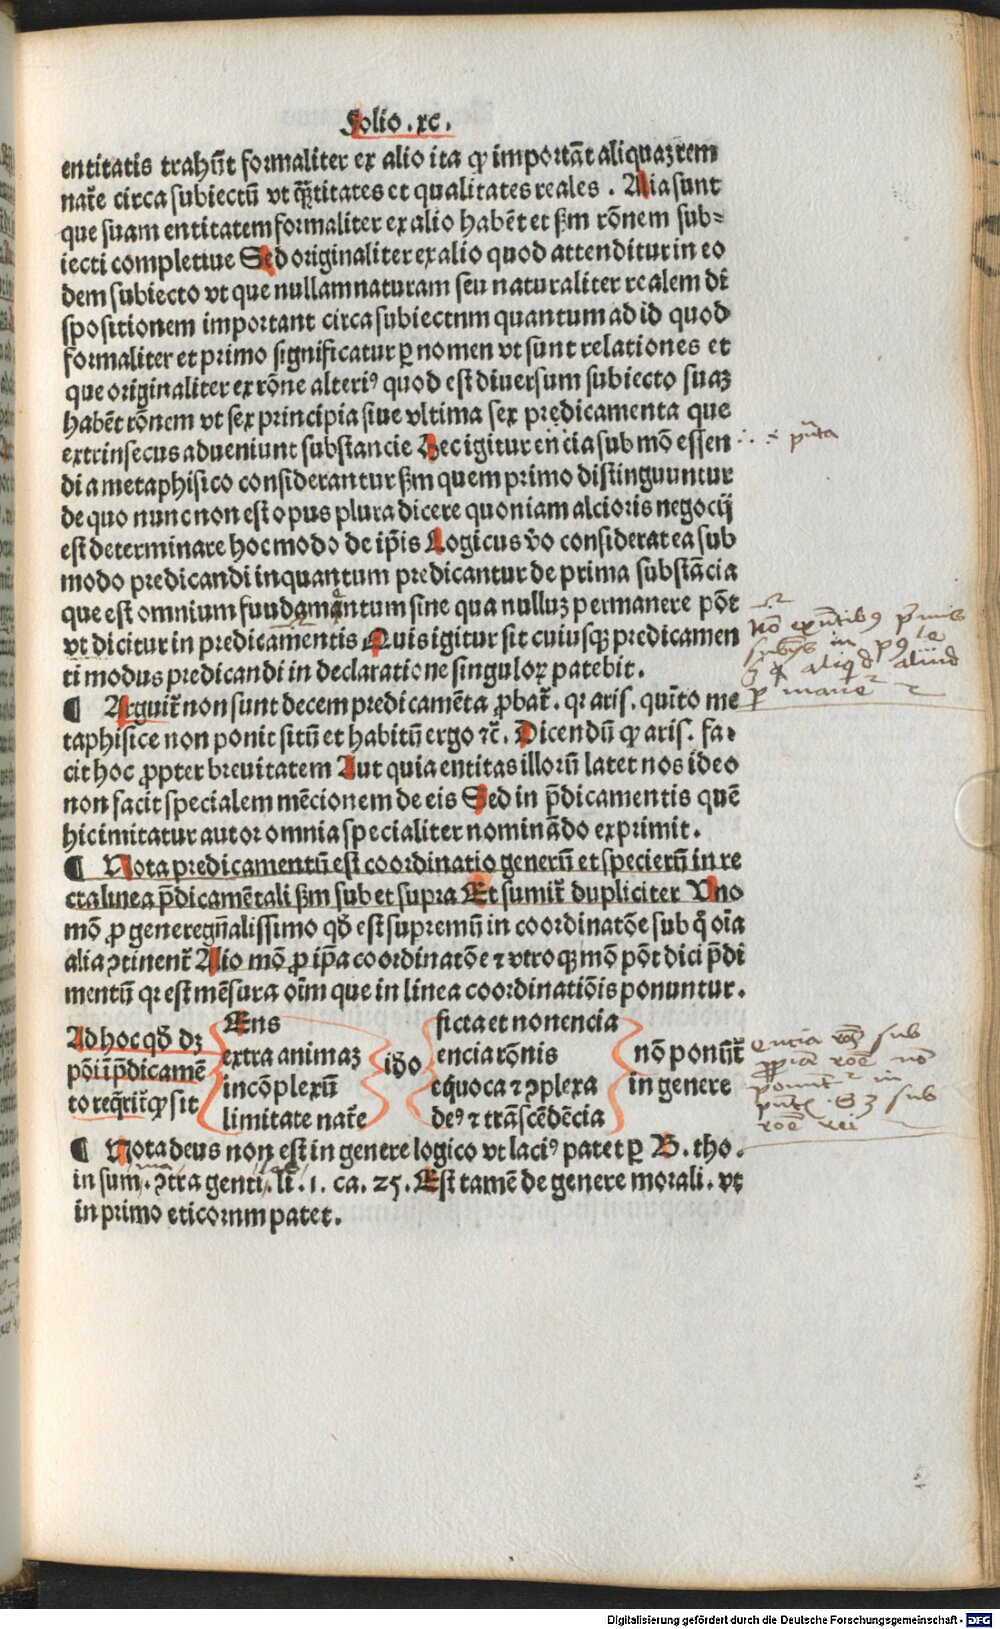 Folio .xc.
entitatis trahūt formaliter ex alio ita ꝙ importāt aliquaꝫ rem
natᷓe circa subiectū vt quātitates et qualitates reales . Alia sunt
que suam entitatem formaliter ex alio habēt et ẜm rōnem sub⸗
iecti completiue Sed originaliter ex alio quod attenditur in eo
dem subiecto vt que nullam naturam seu naturaliter realem di
spositionem important circa subiectnm quantum ad id quod
formaliter et primo significatur ꝑ nomen vt sunt relationes et
que originaliter ex rōne alteriꝰ quod est diuersum subiecto suaꝫ
habēt rōnem vt sex principia siue vltima sex predicamenta que
extrinsecus adueniunt substancie Hec igitur encia sub mō essen
di a metaphisico considerantur ẜm quem primo distinguuntur
de quo nunc non est opus plura dicere quoniam alcioris negocij
est determinare hoc modo de ip̄is Logicus v̄o considerat ea sub
modo predicandi inquantum predicantur de prima substācia
que est omnium fuudamantum sine qua nulluꝫ permanere pōt
vt dicitur in predicamentis Quis igitur sit cuiusqꝫ predicamen
ti modus predicandi in declaratione singuloꝝ patebit.
¶ Arguit̄ non sunt decem predicamēta ꝓbat̄. qꝛ aris. quīto me
taphisice non ponit sitū et habitū ergo ⁊c̄. Dicendū ꝙ aris. fa⸗
cit hoc ꝓpter breuitatem Aut quia entitas illorū latet nos ideo
non facit specialem mēcionem de eis Sed in p̄dicamentis quē
hic imitatur autor omnia specialiter nominādo exprimit.
¶ Nota predicamentū est coordinatio generū et specierū in re
cta linea p̄dicamētali ẜm sub et supra Et sumit̄ dupliciter Vno
mō ꝓ genere gn̄alissimo qd̄ est supremū in coordinatōe sub q̄ oīa
alia ꝯtinent̄ Alio mō ꝓ ip̄a coordinatōe ⁊ vtroqꝫ mō pōt dici p̄di
mentū qꝛ est mēsura oīm que in linea coordinatiōis ponuntur.
Ad hoc qd̄ dꝫ
pōi ī p̄dicamē
to req̄rit̄ ꝙ sit
Ens
extra animaꝫ
incōplexū
limitate nat̄e
iđo
ficta et non encia
encia rōnis
eq̄uoca ⁊ ꝯplexa
deꝰ ⁊ trāscēdēcia
nō ponūt̄
in genere
¶ Nota deus non est in genere logico vt laciꝰ patet ꝑ B. tho.
in sum. ꝯtra genti. li. 1. ca. 25. Est tamē de genere morali. vt
in primo eticornm patet.